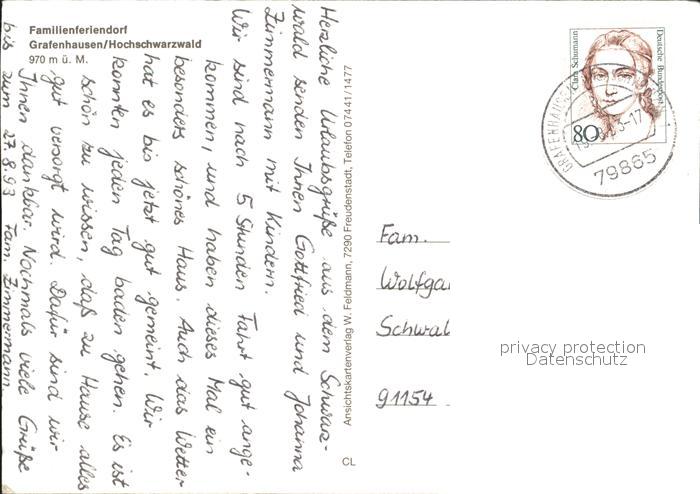 Familienferiendorf
Grafenhausen/Hochschwarzwald
970 m ü. M.
Herzliche Urlaubsgrüße aus dem Schwarz-
wald senden Ihnen Gottfried und Johanna
Zimmermann mit Kindern.
Wir sind nach 5 Stunden Fahrt gut ange-
kommen, und haben dieses Mal ein
besonders schönes Haus. Auch das Wetter
hat es bis jetzt gut gemeint. Wir
konnten jeden Tag baden gehen. Es ist
schön zu wissen, daß zu Hause alles
gut versorgt wird. Dafür sind wir
Ihnen dankbar. Nochmals viele Grüße
bis zum 27.8.93 Fam. Zimmermann.
Ansichtskartenverlag W. Feldmann, 7290 Freudenstadt, Telefon 07441/1477
CL
Clara Schumann
Deutsche Bundespost
80
GRAFENHAUSEN
79865
Fam.
Wolfga
Schwal
91154
privacy protection
Datenschutz